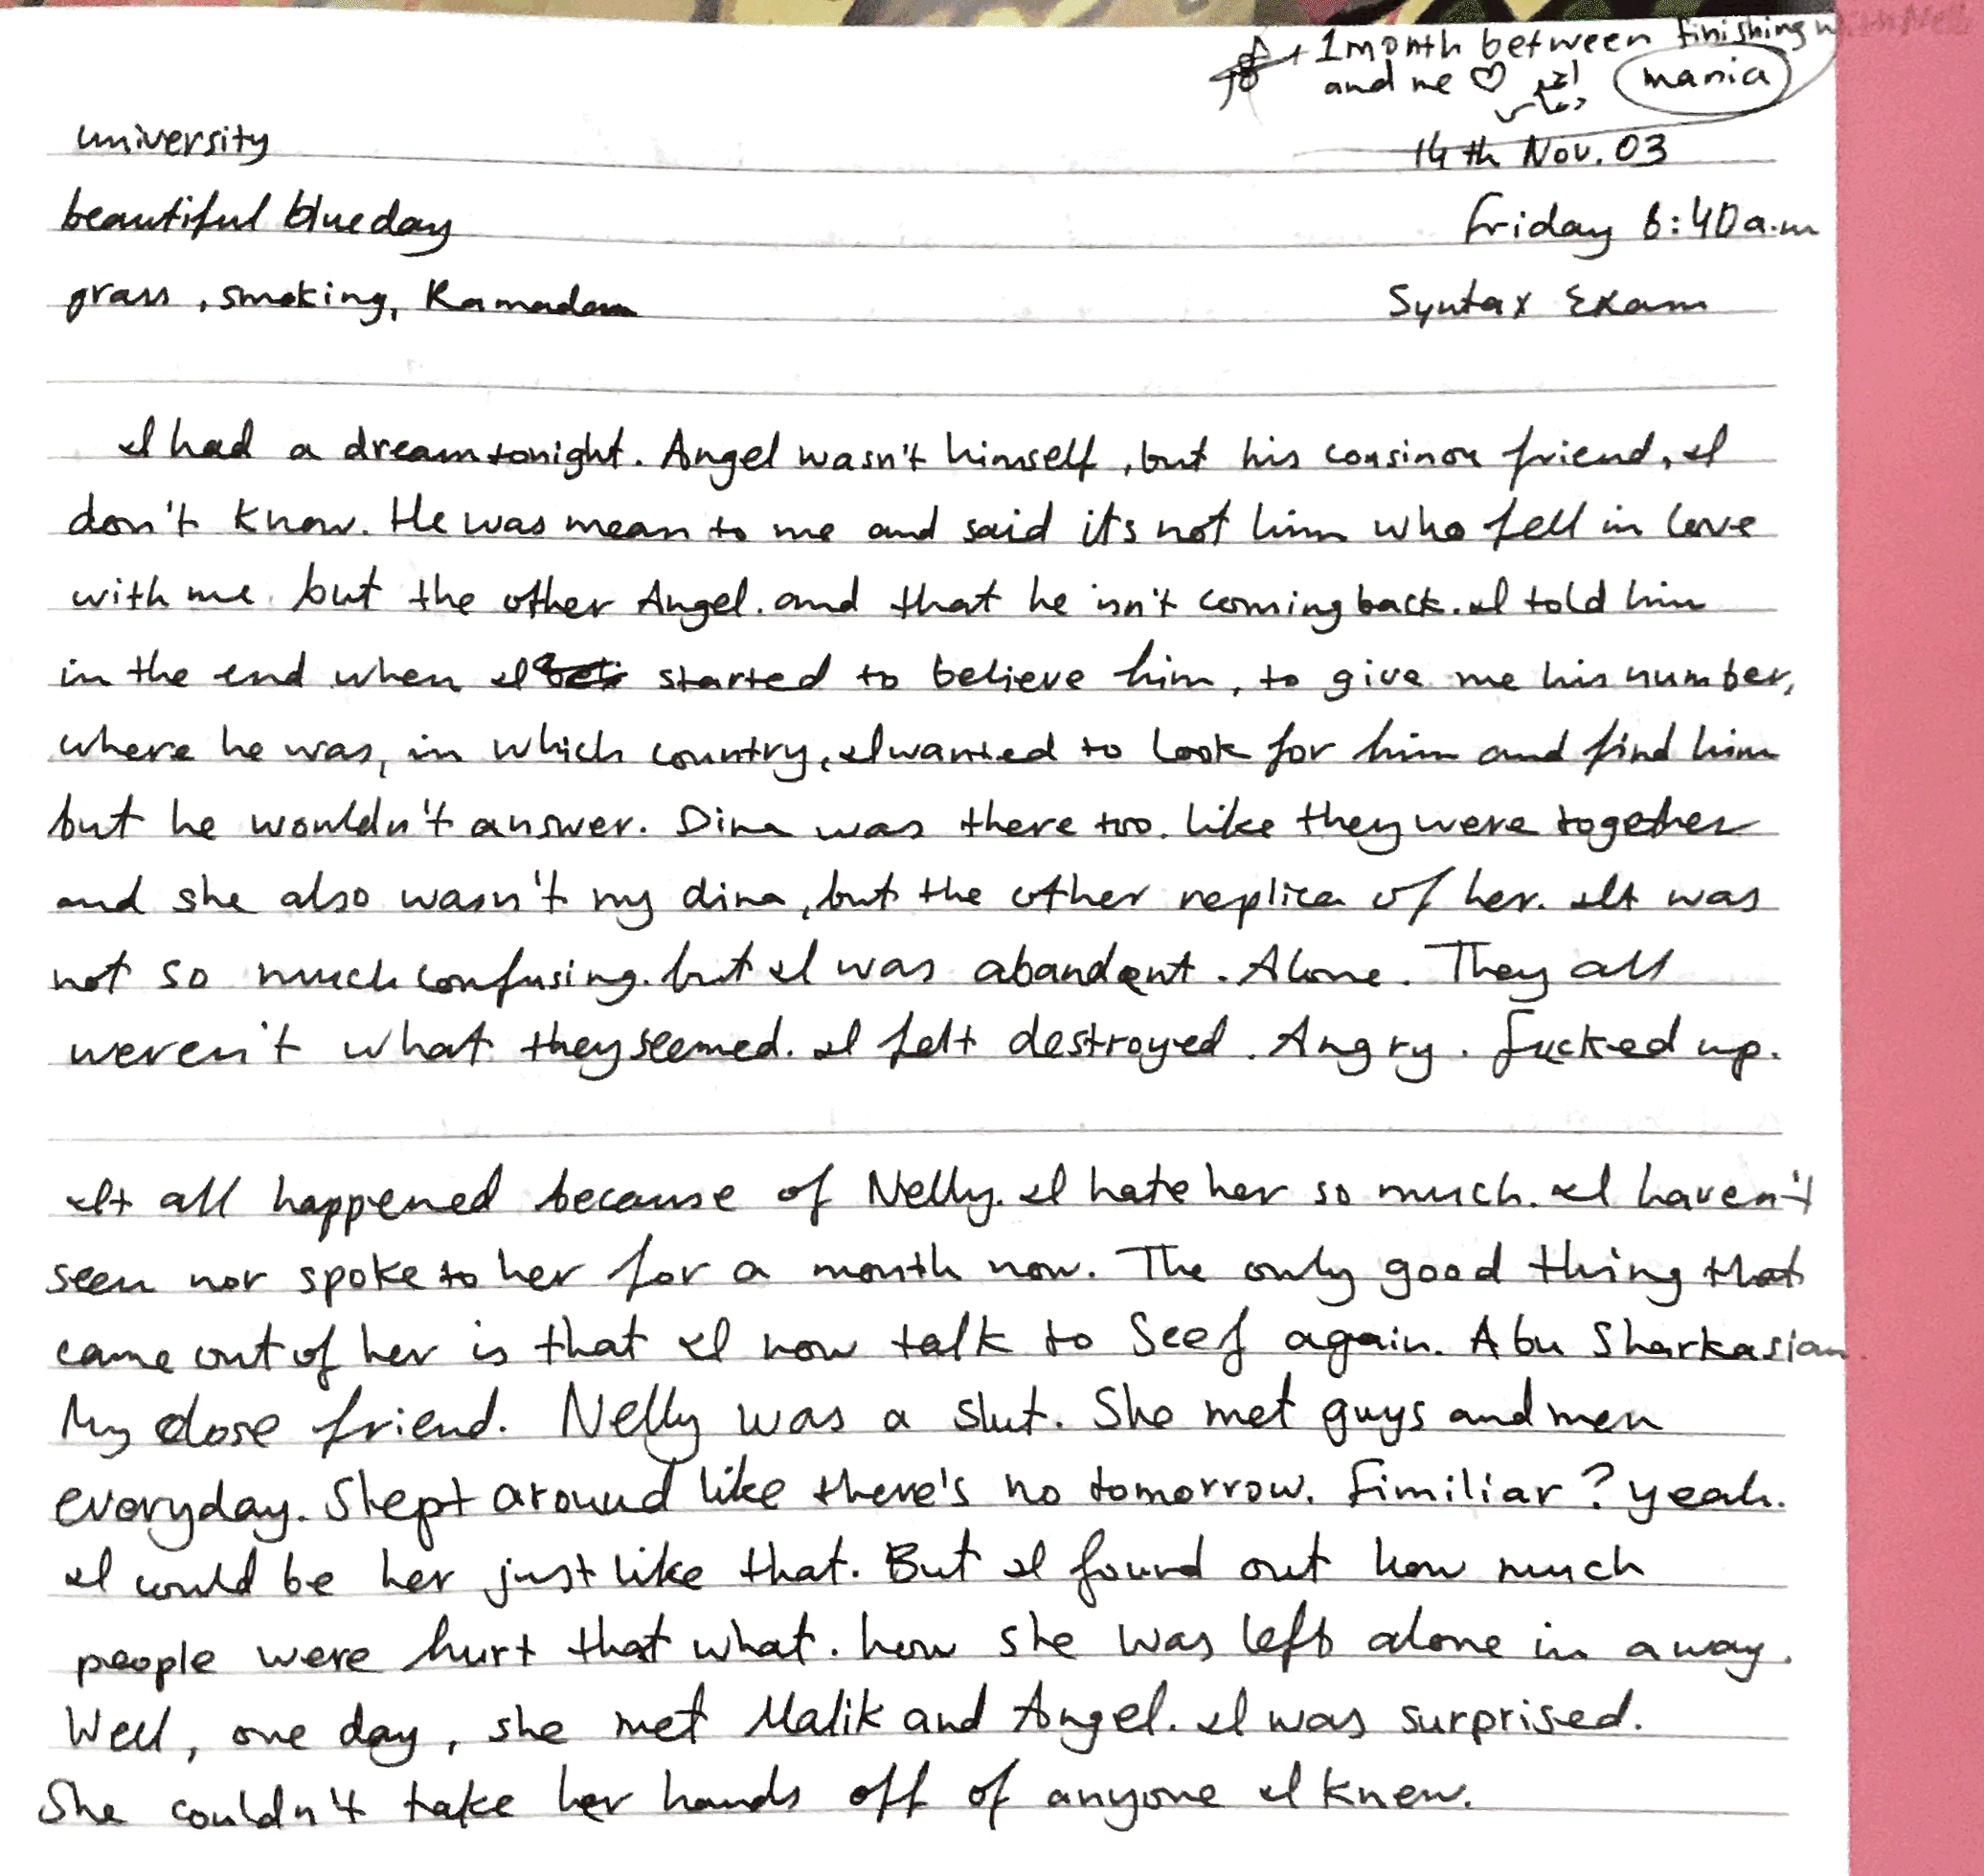 1 month between finishing with Nelly
and me ♡ mania
university
14th Nov. 03
beautiful blue day
Friday 6:40 a.m
grass, smoking, Ramadan
Syntax Exam
I had a dream tonight. Angel wasn't himself, but his cousin or friend, I
don't know. He was mean to me and said it's not him who fell in love
with me but the other Angel. and that he isn't coming back. I told him
in the end when I started to believe him, to give me his number,
where he was, in which country, I wanted to look for him and find him
but he wouldn't answer. Dina was there too. like they were together
and she also wasn't my dina, but the other replica of her. It was
not so much confusing. but I was abandent. Alone. They all
weren't what they seemed. I felt destroyed. Angry. Fucked up.
It all happened because of Nelly. I hate her so much. I haven't
seen nor spoke to her for a month now. The only good thing that
came out of her is that I now talk to Seef again. Abu Sharkasian.
My close friend. Nelly was a slut. She met guys and men
everyday. Slept around like there's no tomorrow. Fimiliar? yeah.
I could be her just like that. But I found out how much
people were hurt that what. how she was left alone in a way.
Well, one day, she met Malik and Angel. I was surprised.
She couldn't take her hands off of anyone I knew.